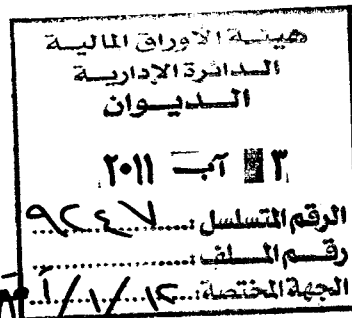 هيئة الاوراق المالية
الدائرة الإدارية
الديوان
٣ آب ٢٠١١
الرقم المتسلسل: ٩٢٤٧
رقم الملف:
الجهة المختصة: